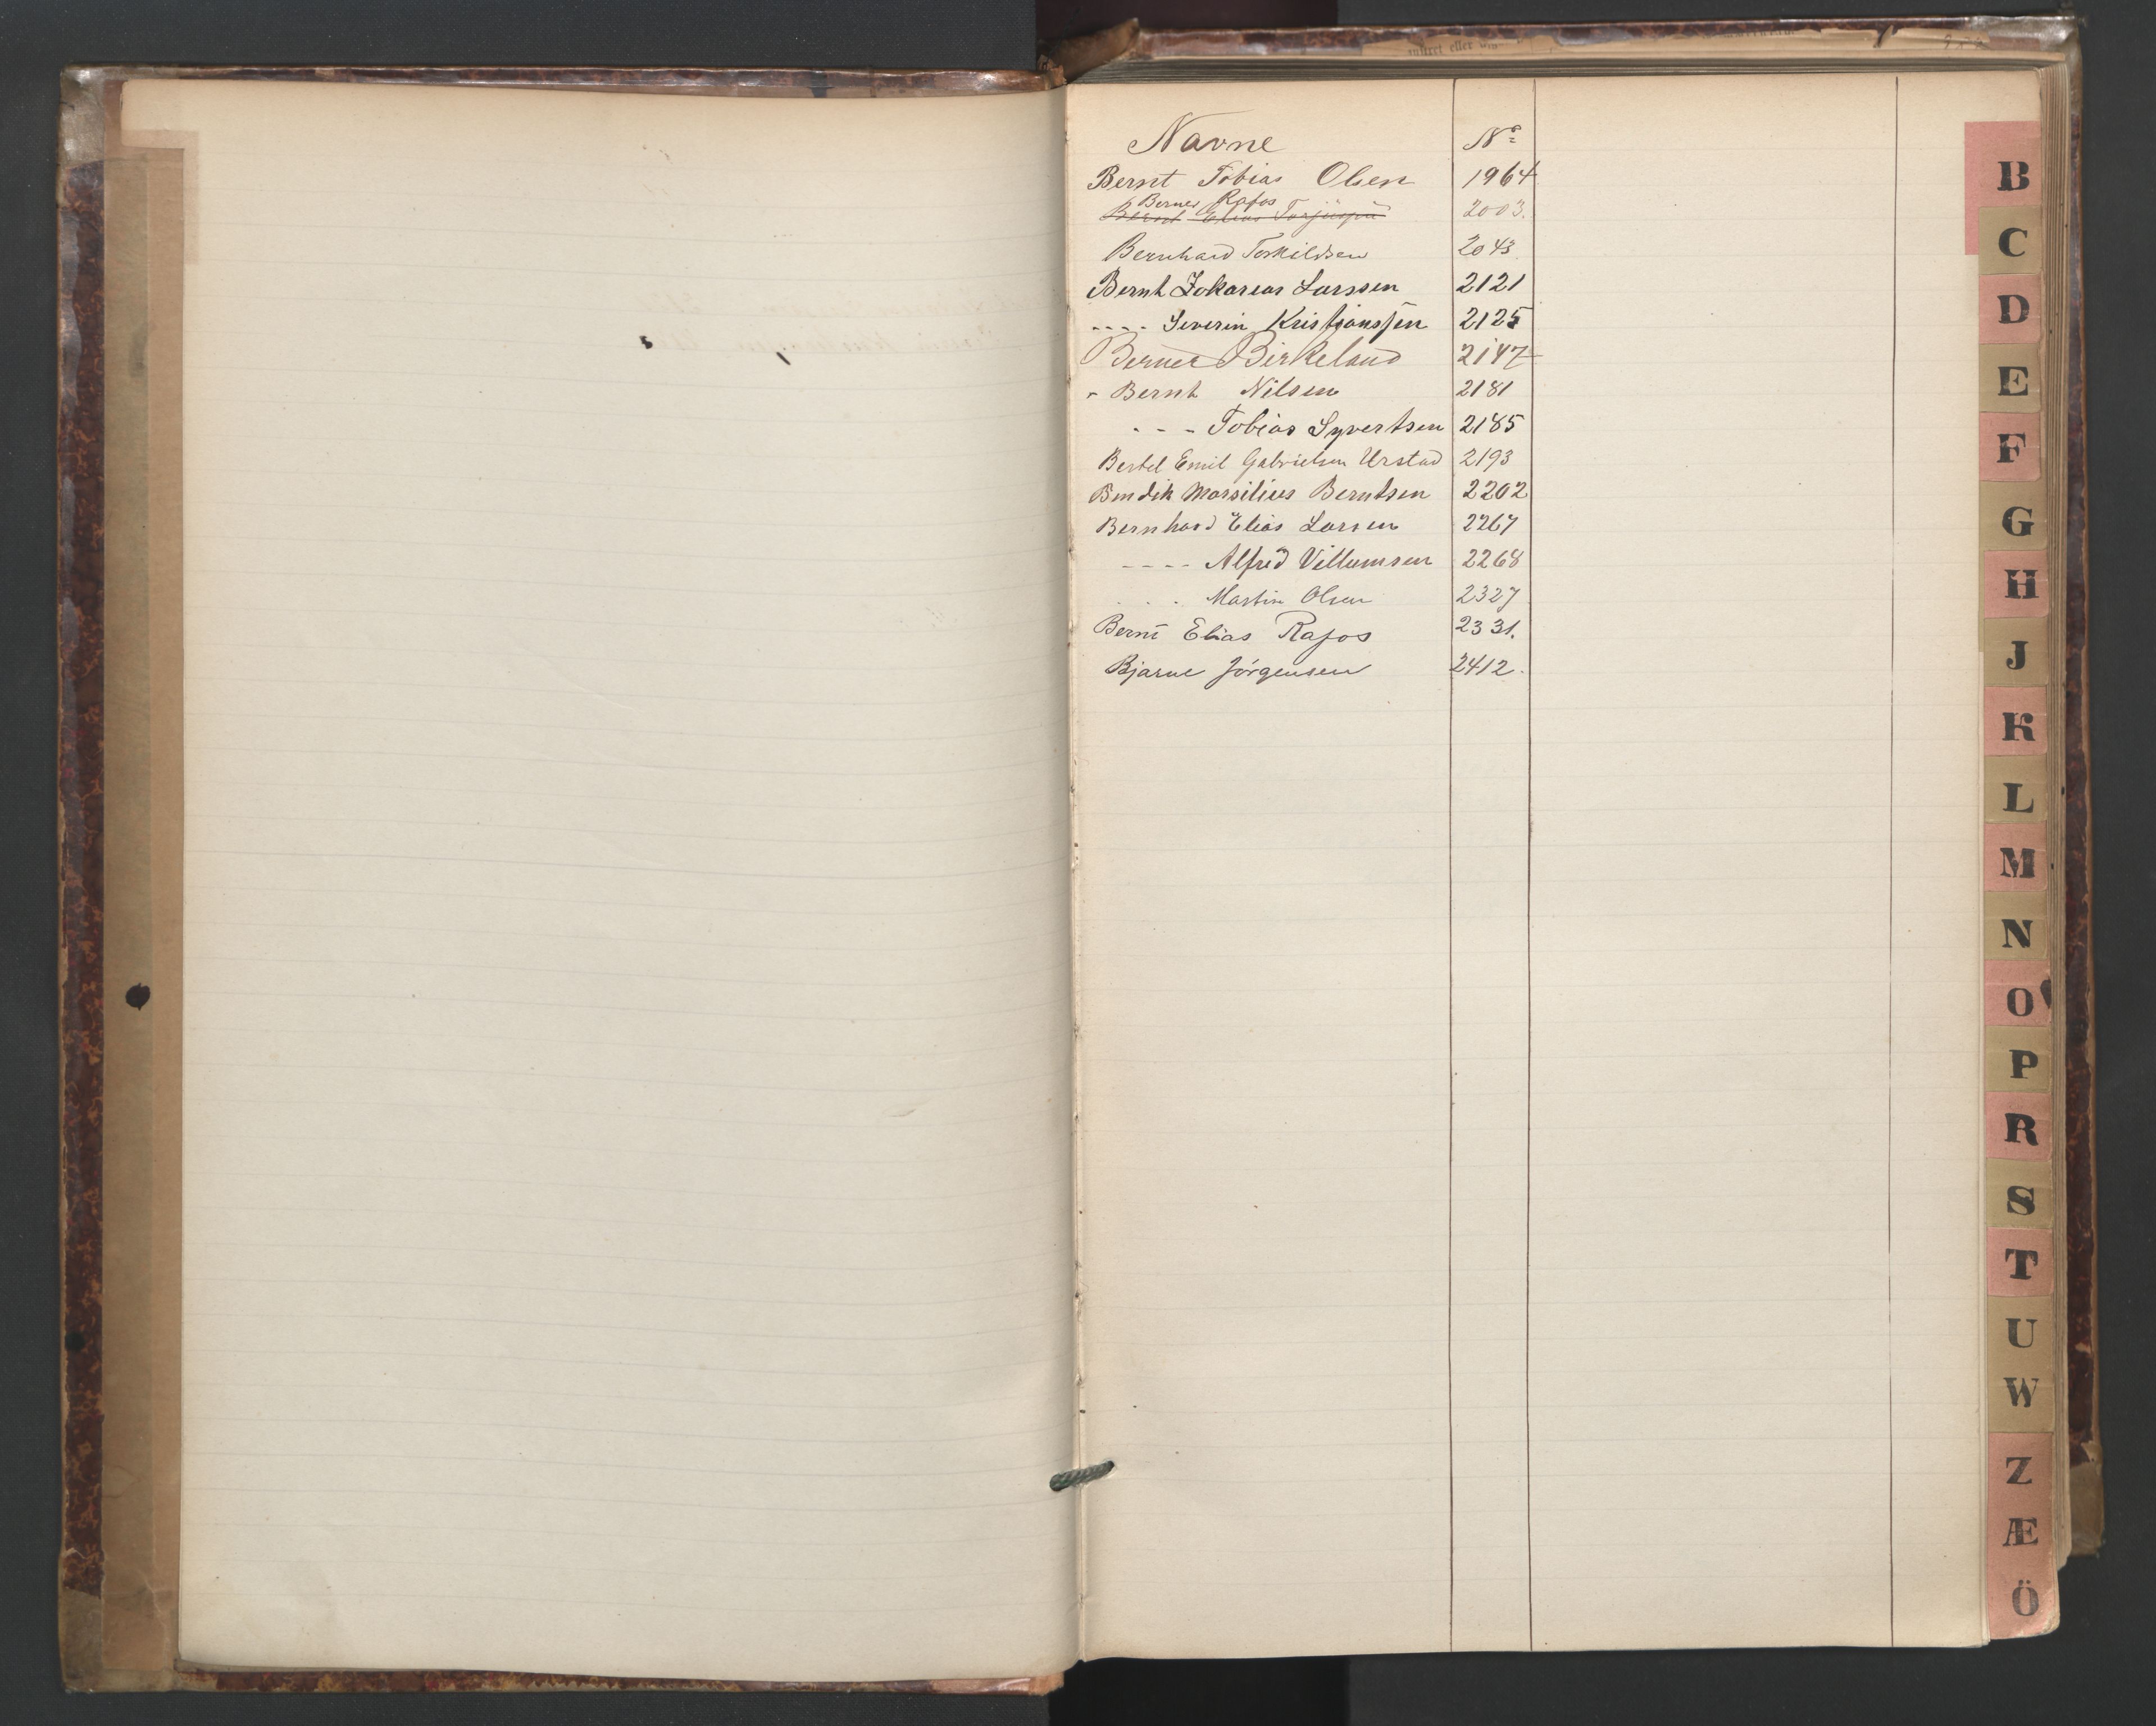 Navne No
Bernt Tobias Olsen 1964
Berner Rafos
Bernt Elias 2003.
Bernhard Torkildsen 2043
Bernt Zakarias Larssen 2121
---- Severin Kristianssen 2125
Berner Birkeland 2147
- Bernt Nilsen 2181
--- Tobias Syvertsen 2185
Bertel Emil Gabrielsen Urstad 2193
Bendik Marsilius Berntsen 2202
Bernhard Elias Larsen 2267
---- Alfred Villumsen 2268
. . . Martin Olsen 2327
Bernt Elias Rafos 2331.
Bjarne Jörgensen 2412.
B
C
D
E
F
G
H
J
K
L
M
N
O
P
R
S
T
U
W
Z
Æ
Ö